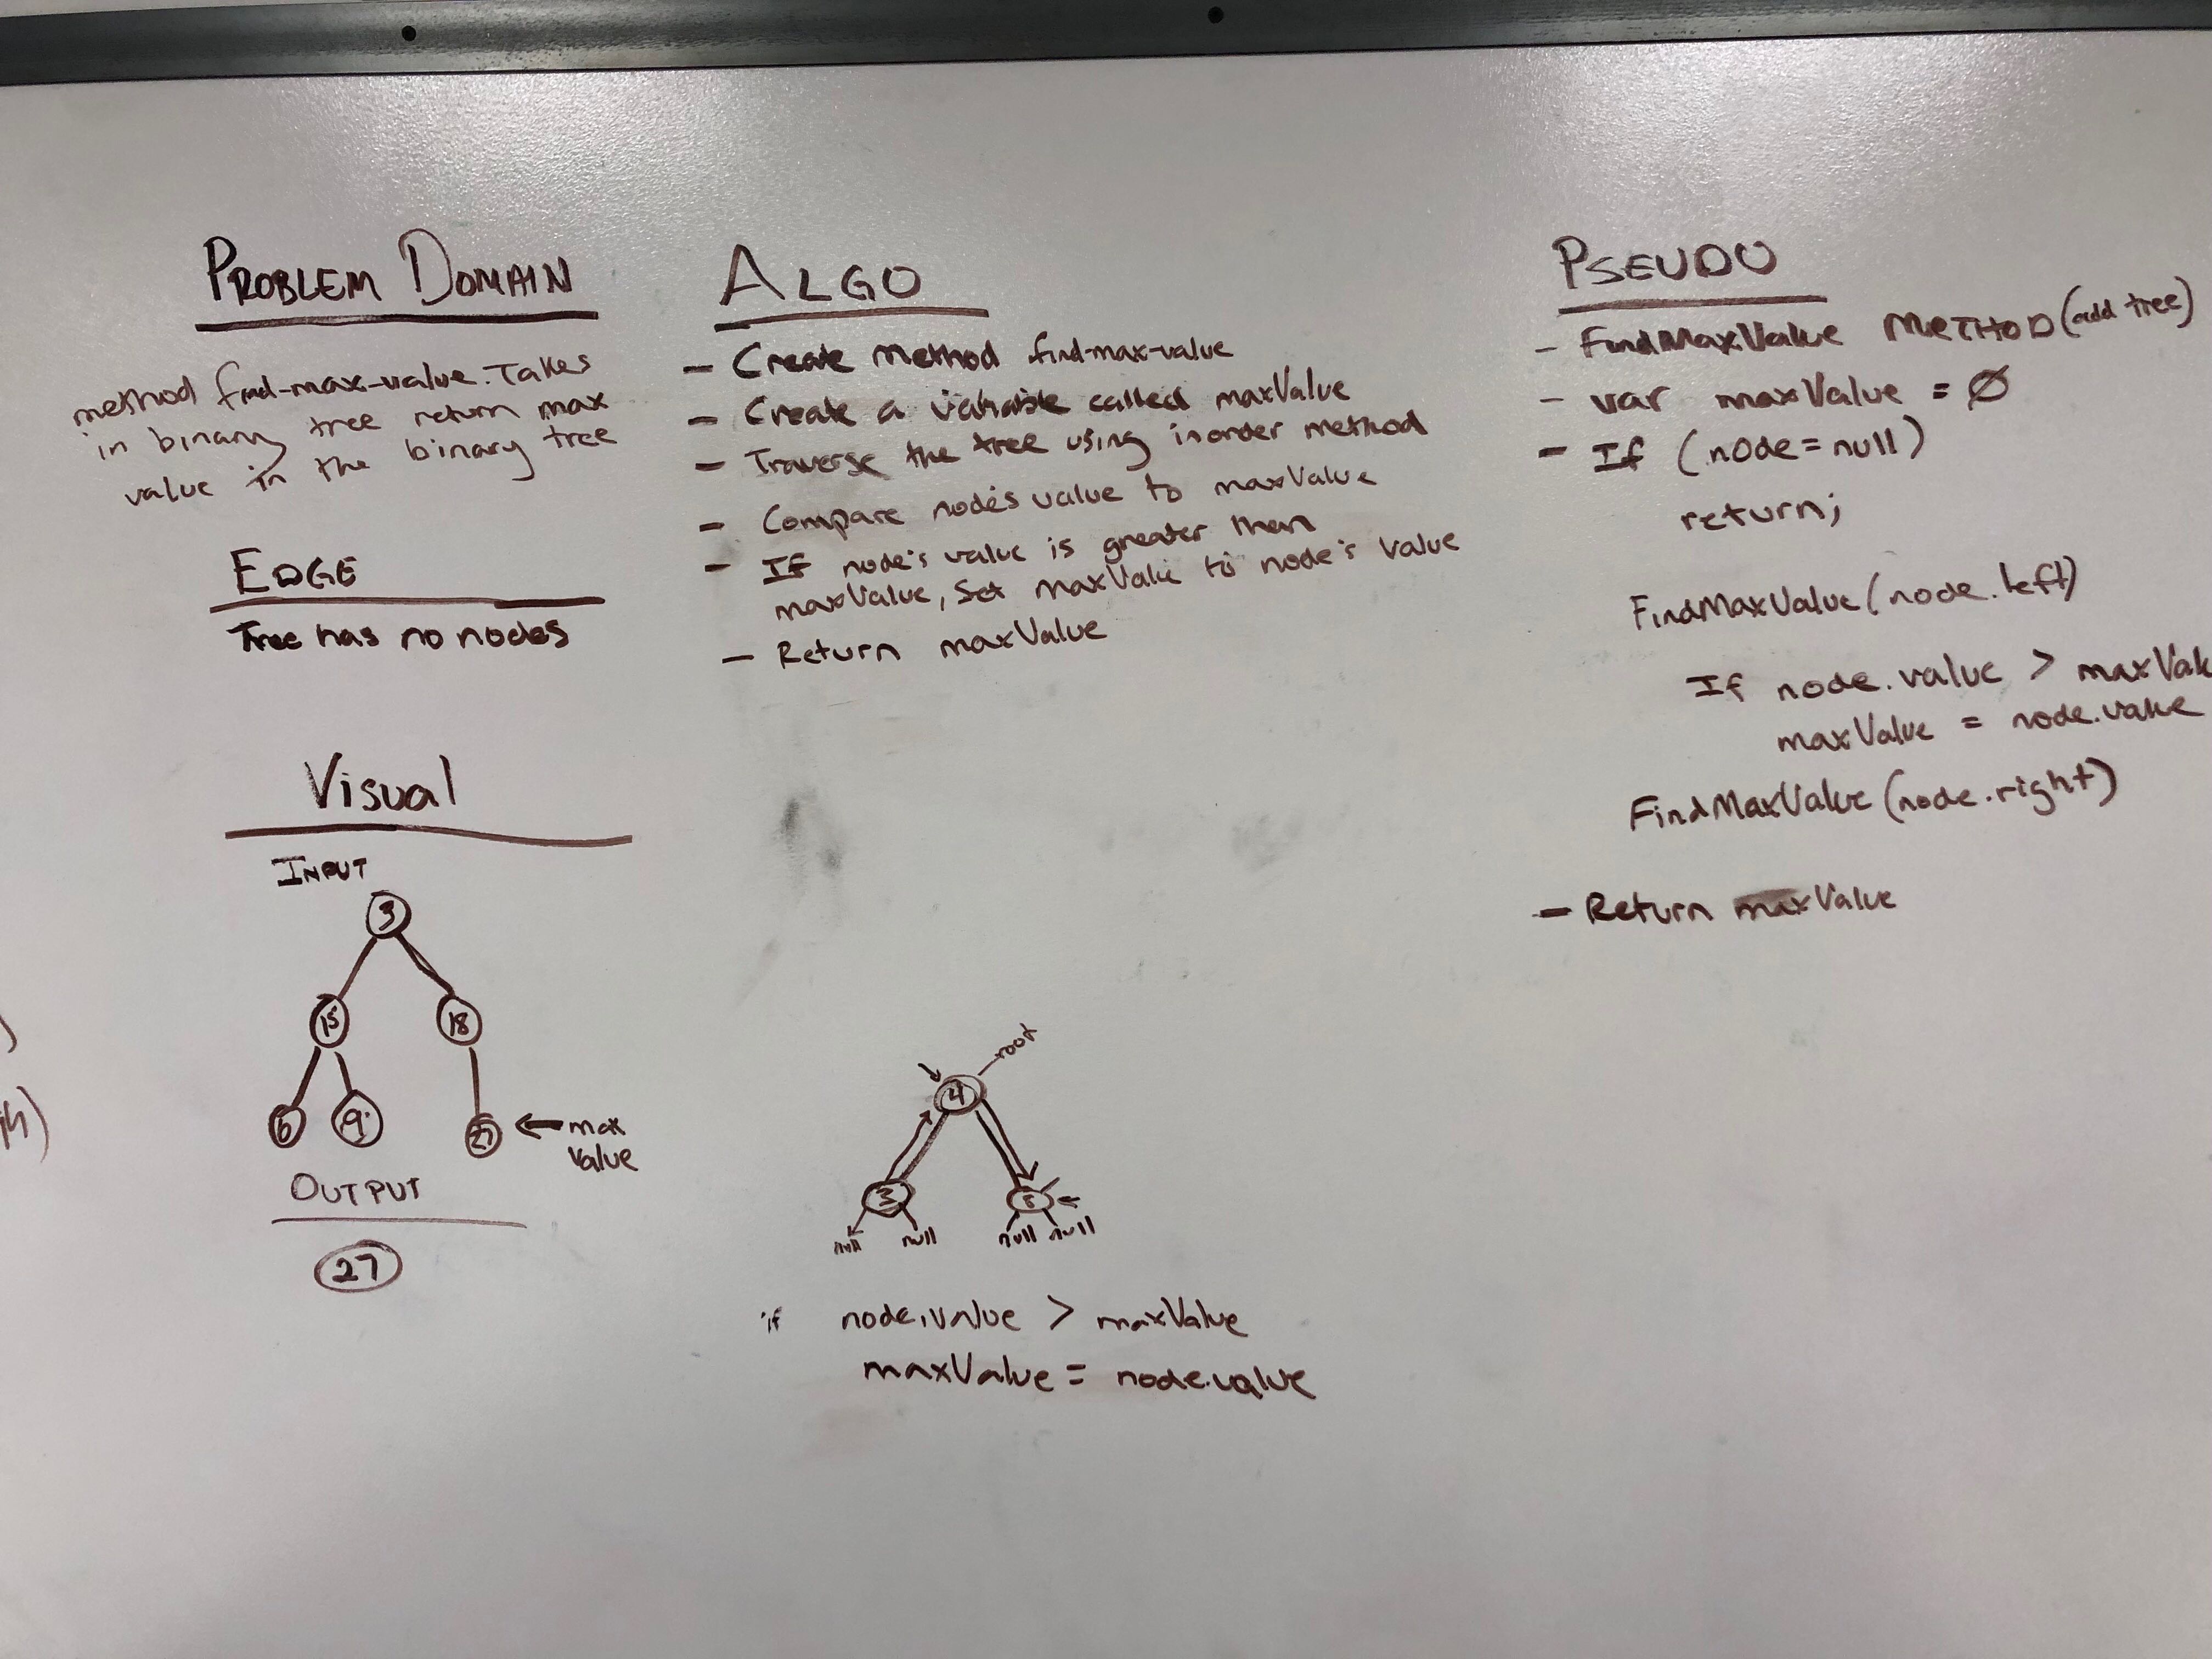 PROBLEM DOMAIN
method find-max-value. Takes
in binary tree return max
value in the binary tree
EDGE
Tree has no nodes
Visual
INPUT
3
15 18
6 9 27
← max
value
OUTPUT
27
ALGO
- Create Method find-max-value
- Create a variable called maxValue
- Traverse the tree using inorder method
- Compare node's value to maxValue
- If node's value is greater than
maxValue, Set maxValue to node's value
- Return maxValue
root
4
3
null null null null
if node.value > maxValue
maxValue = node.value
PSEUDO
- FindMaxValue METHOD (add tree)
- var maxValue = Ø
- If (node = null)
return;
FindMaxValue (node.left)
If node.value > maxVal
maxValue = node.value
FindMaxValue (node.right)
- Return maxValue